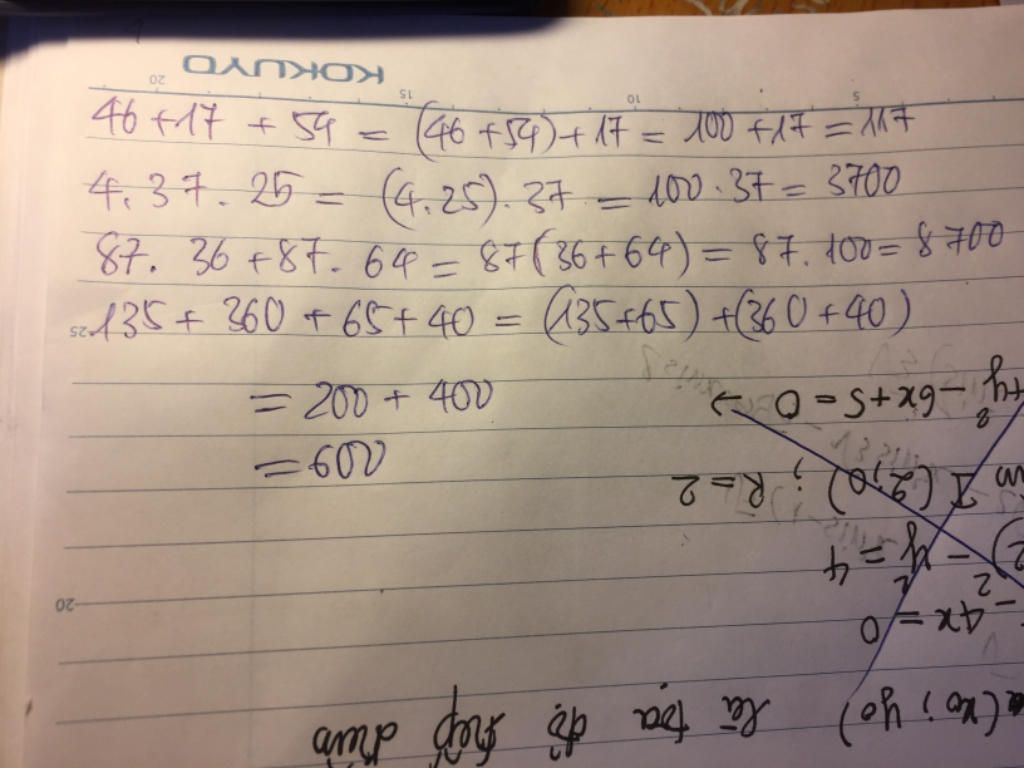 KOKUYO
20 15 10 5
46 + 17 + 54 = (46 + 54) + 17 = 100 + 17 = 117
4.37.25 = (4.25).37 = 100.37 = 3700
87.36 + 87.64 = 87(36 + 64) = 87.100 = 8700
25
135 + 360 + 65 + 40 = (135 + 65) + (360 + 40)
= 200 + 400
= 600
20
(x₀; y₀) là tọa độ tiếp điểm
- 4x = 0
2) - y² = 4
I (2; 0) ; R = 2
+ y² - 6x + 5 = 0 →